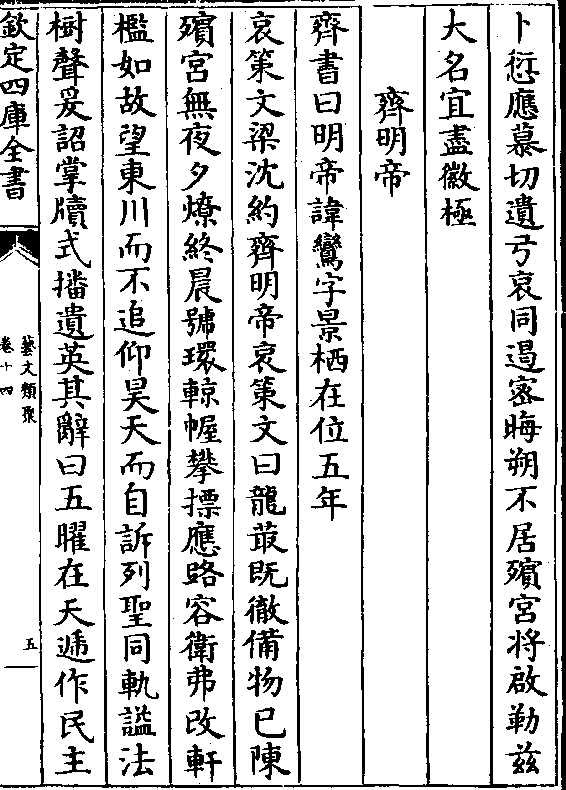 卜愆應慕切遺弓哀同遏密晦朔不居殯宮将啟勒兹
大名宜盡徽極
齊明帝
齊書曰明帝諱鸞字景栖在位五年
哀策文梁沈約齊明帝哀策文曰龍菆既徹備物已陳
殯宮無夜夕燎終晨號環輬幄攀摽應路容衛弗改軒
檻如故望東川而不追仰昊天而自訴列聖同軌謚法
樹聲爰詔掌牘式播遺英其辭曰五曜在天遞作民主
欽定四庫全書
藝文類聚
卷十四
五